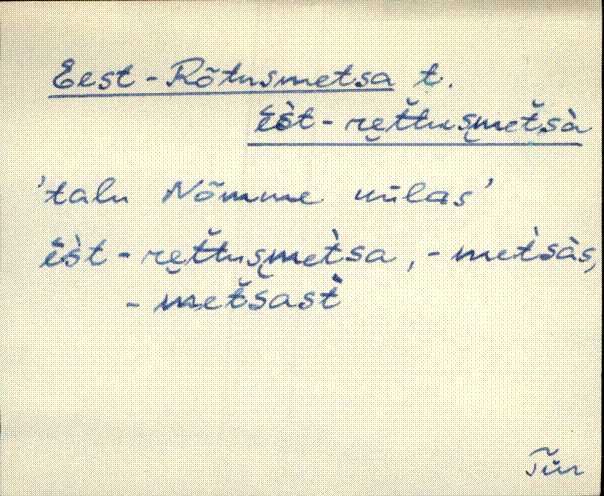 Eest-Rõtusmetsa t.
ēst-rettusmetsà
'talu Nõmme külas'
ēst-rettusmetsa, -metsàs,
-metsast
Tür